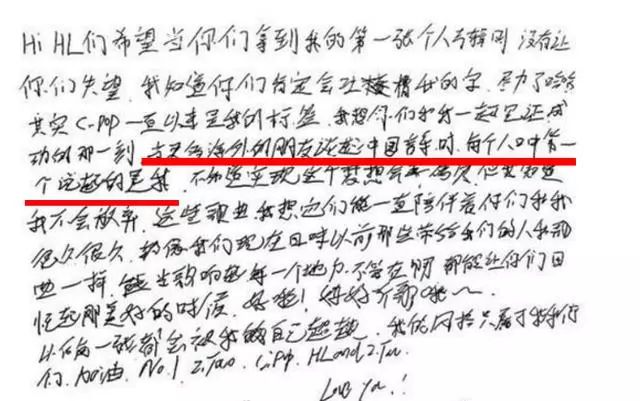 Hi HL们希望当你们拿到我的第一张个人专辑时 没有让
你们失望 我知道你们肯定会吐槽我的字 尽力了哈哈
其实C-POP一直以来是我的标签 我想你们和我一起见证成
功的那一刻 当灵魂海外的朋友谈起中国音乐时 每个人口中第一
个说起的是我 不知道实现这个梦想会要多久 但我知道
我不会放弃 这些歌曲我想它们能一直陪伴着你们和我
很久很久 就像我们现在回味以前那些带给我们的人和歌
曲一样 能影响每一个地方 不管在哪 都能让你们回
忆起那美好的时候 好啦
以后每一张都会被我自己超越 我 只属于我和你
们 加油 No.1 Z.Tao C-Pop HL and Z.Tao
Love You!